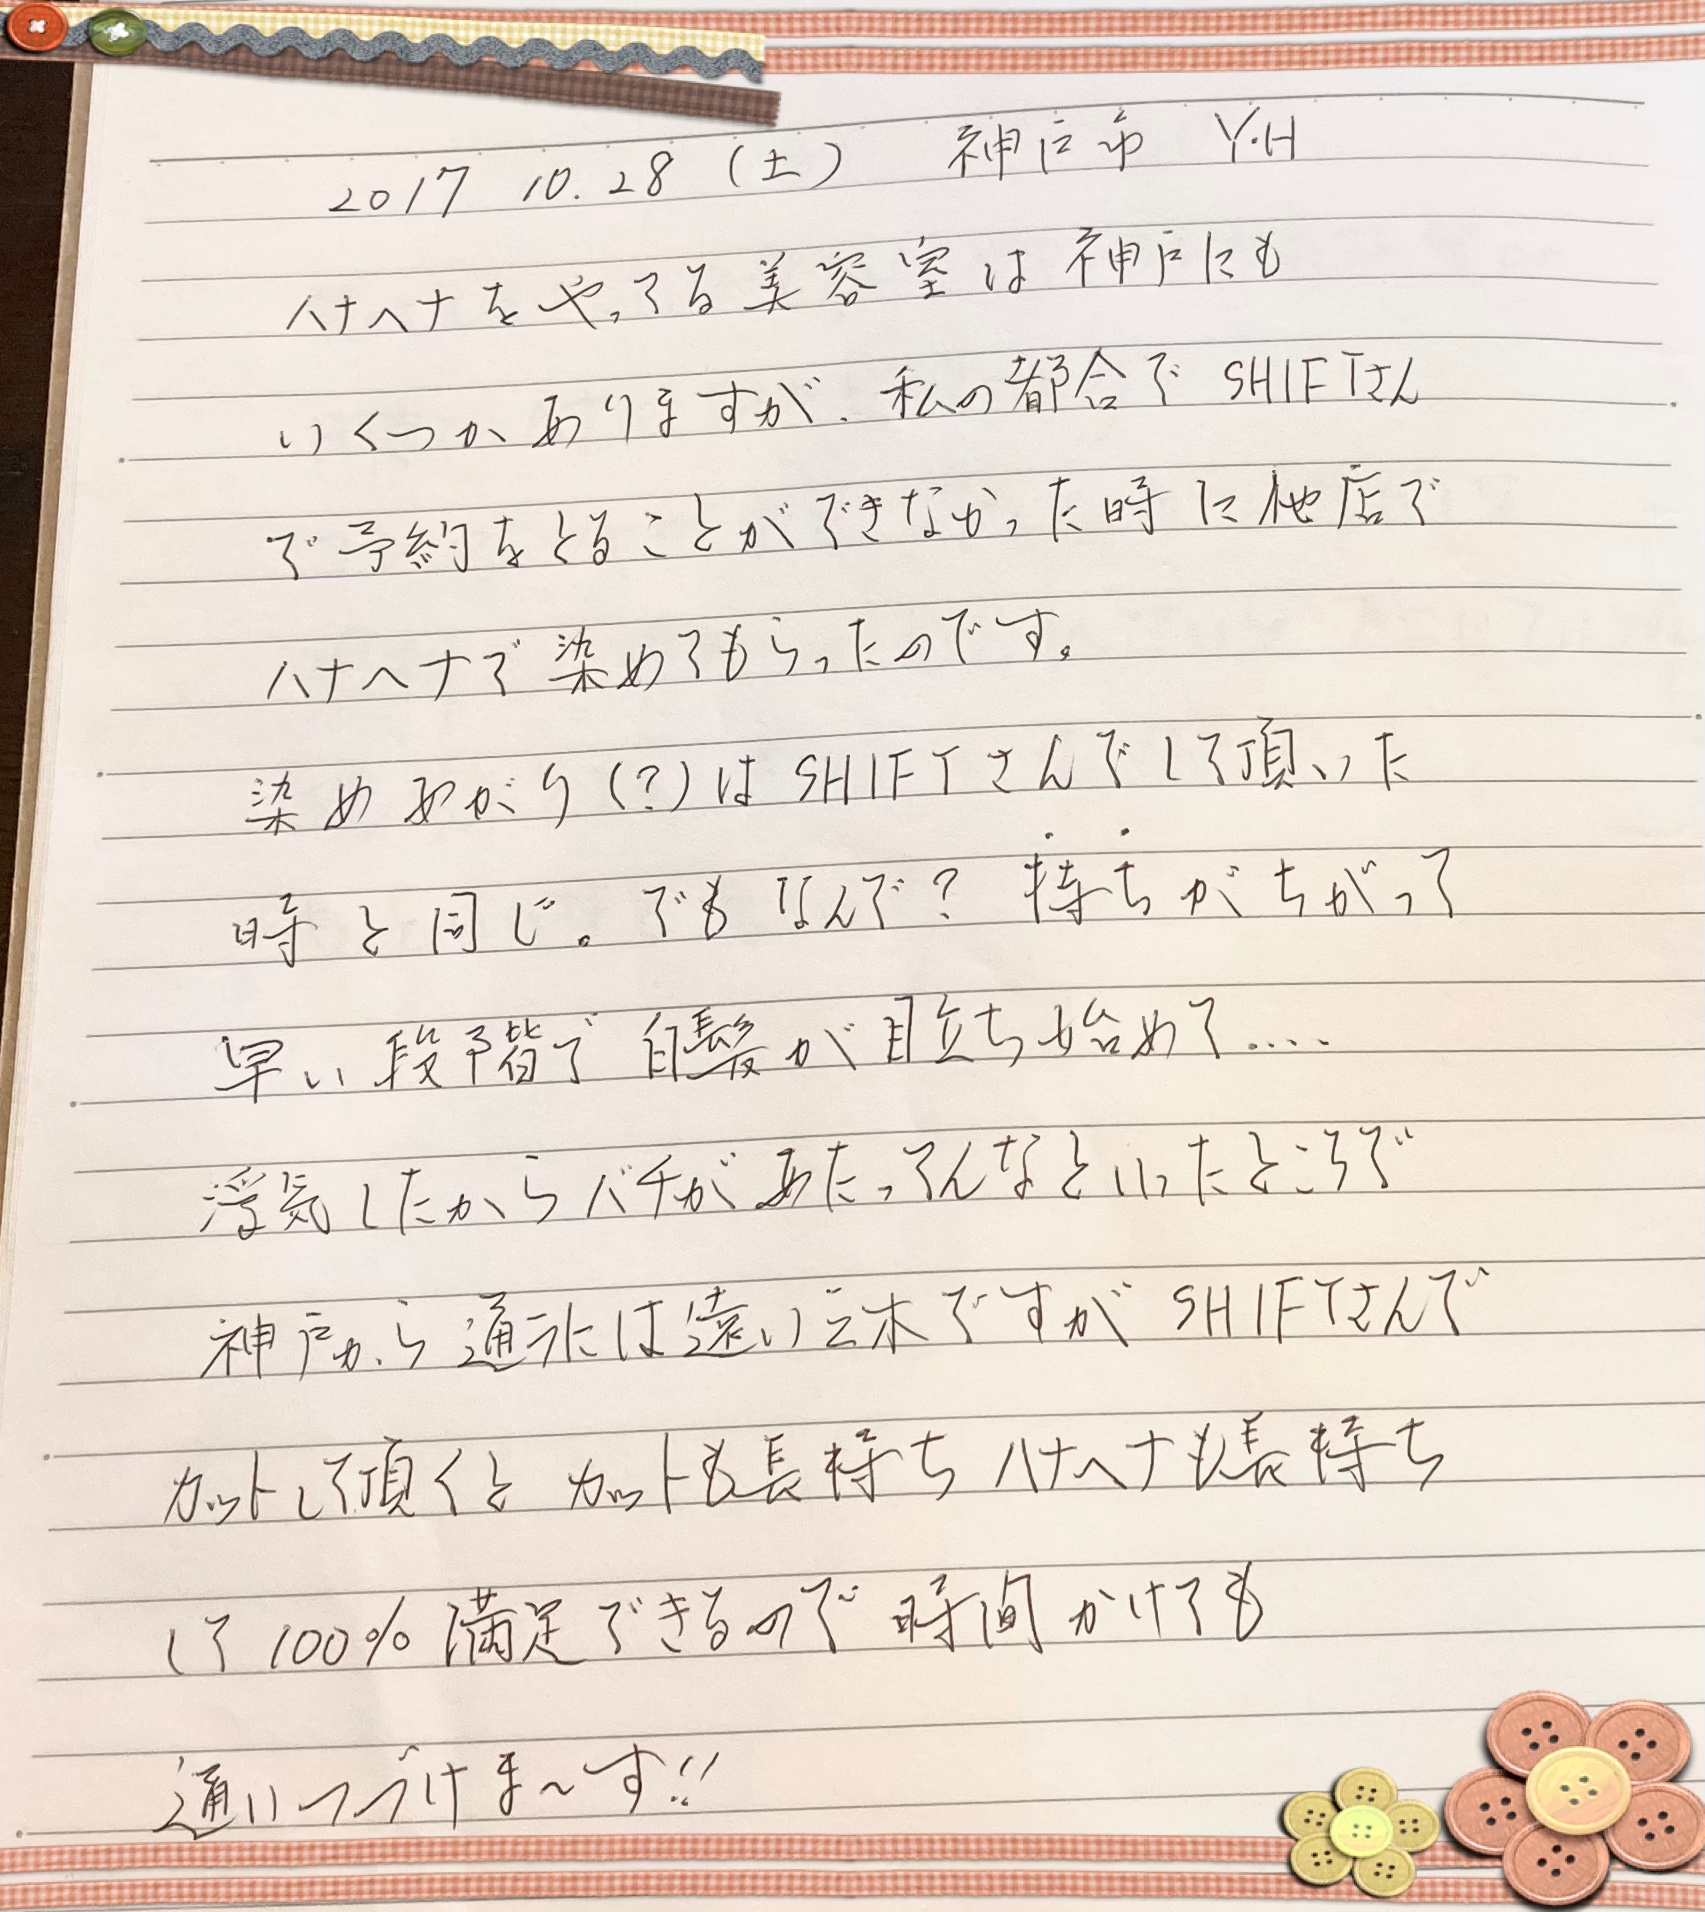 2017 10.28 (土) 神戸市 Y.H
ハナヘナをやってる美容室は神戸にも
いくつかありますが、私の都合でSHIFTさん
で予約をとることができなかった時に他店で
ハナヘナで染めてもらったのです。
染めあがり(?)はSHIFTさんでして頂いた
時と同じ。でもなんで?持ちがちがって
早い段階で白髪が目立ち始めて....
浮気したからバチがあたってんなといったところで
神戸から通うには遠い三木ですがSHIFTさんで
カットして頂くとカットも長持ちハナヘナも長持ち
して100%満足できるので時間かけても
通いつづけま〜す!!